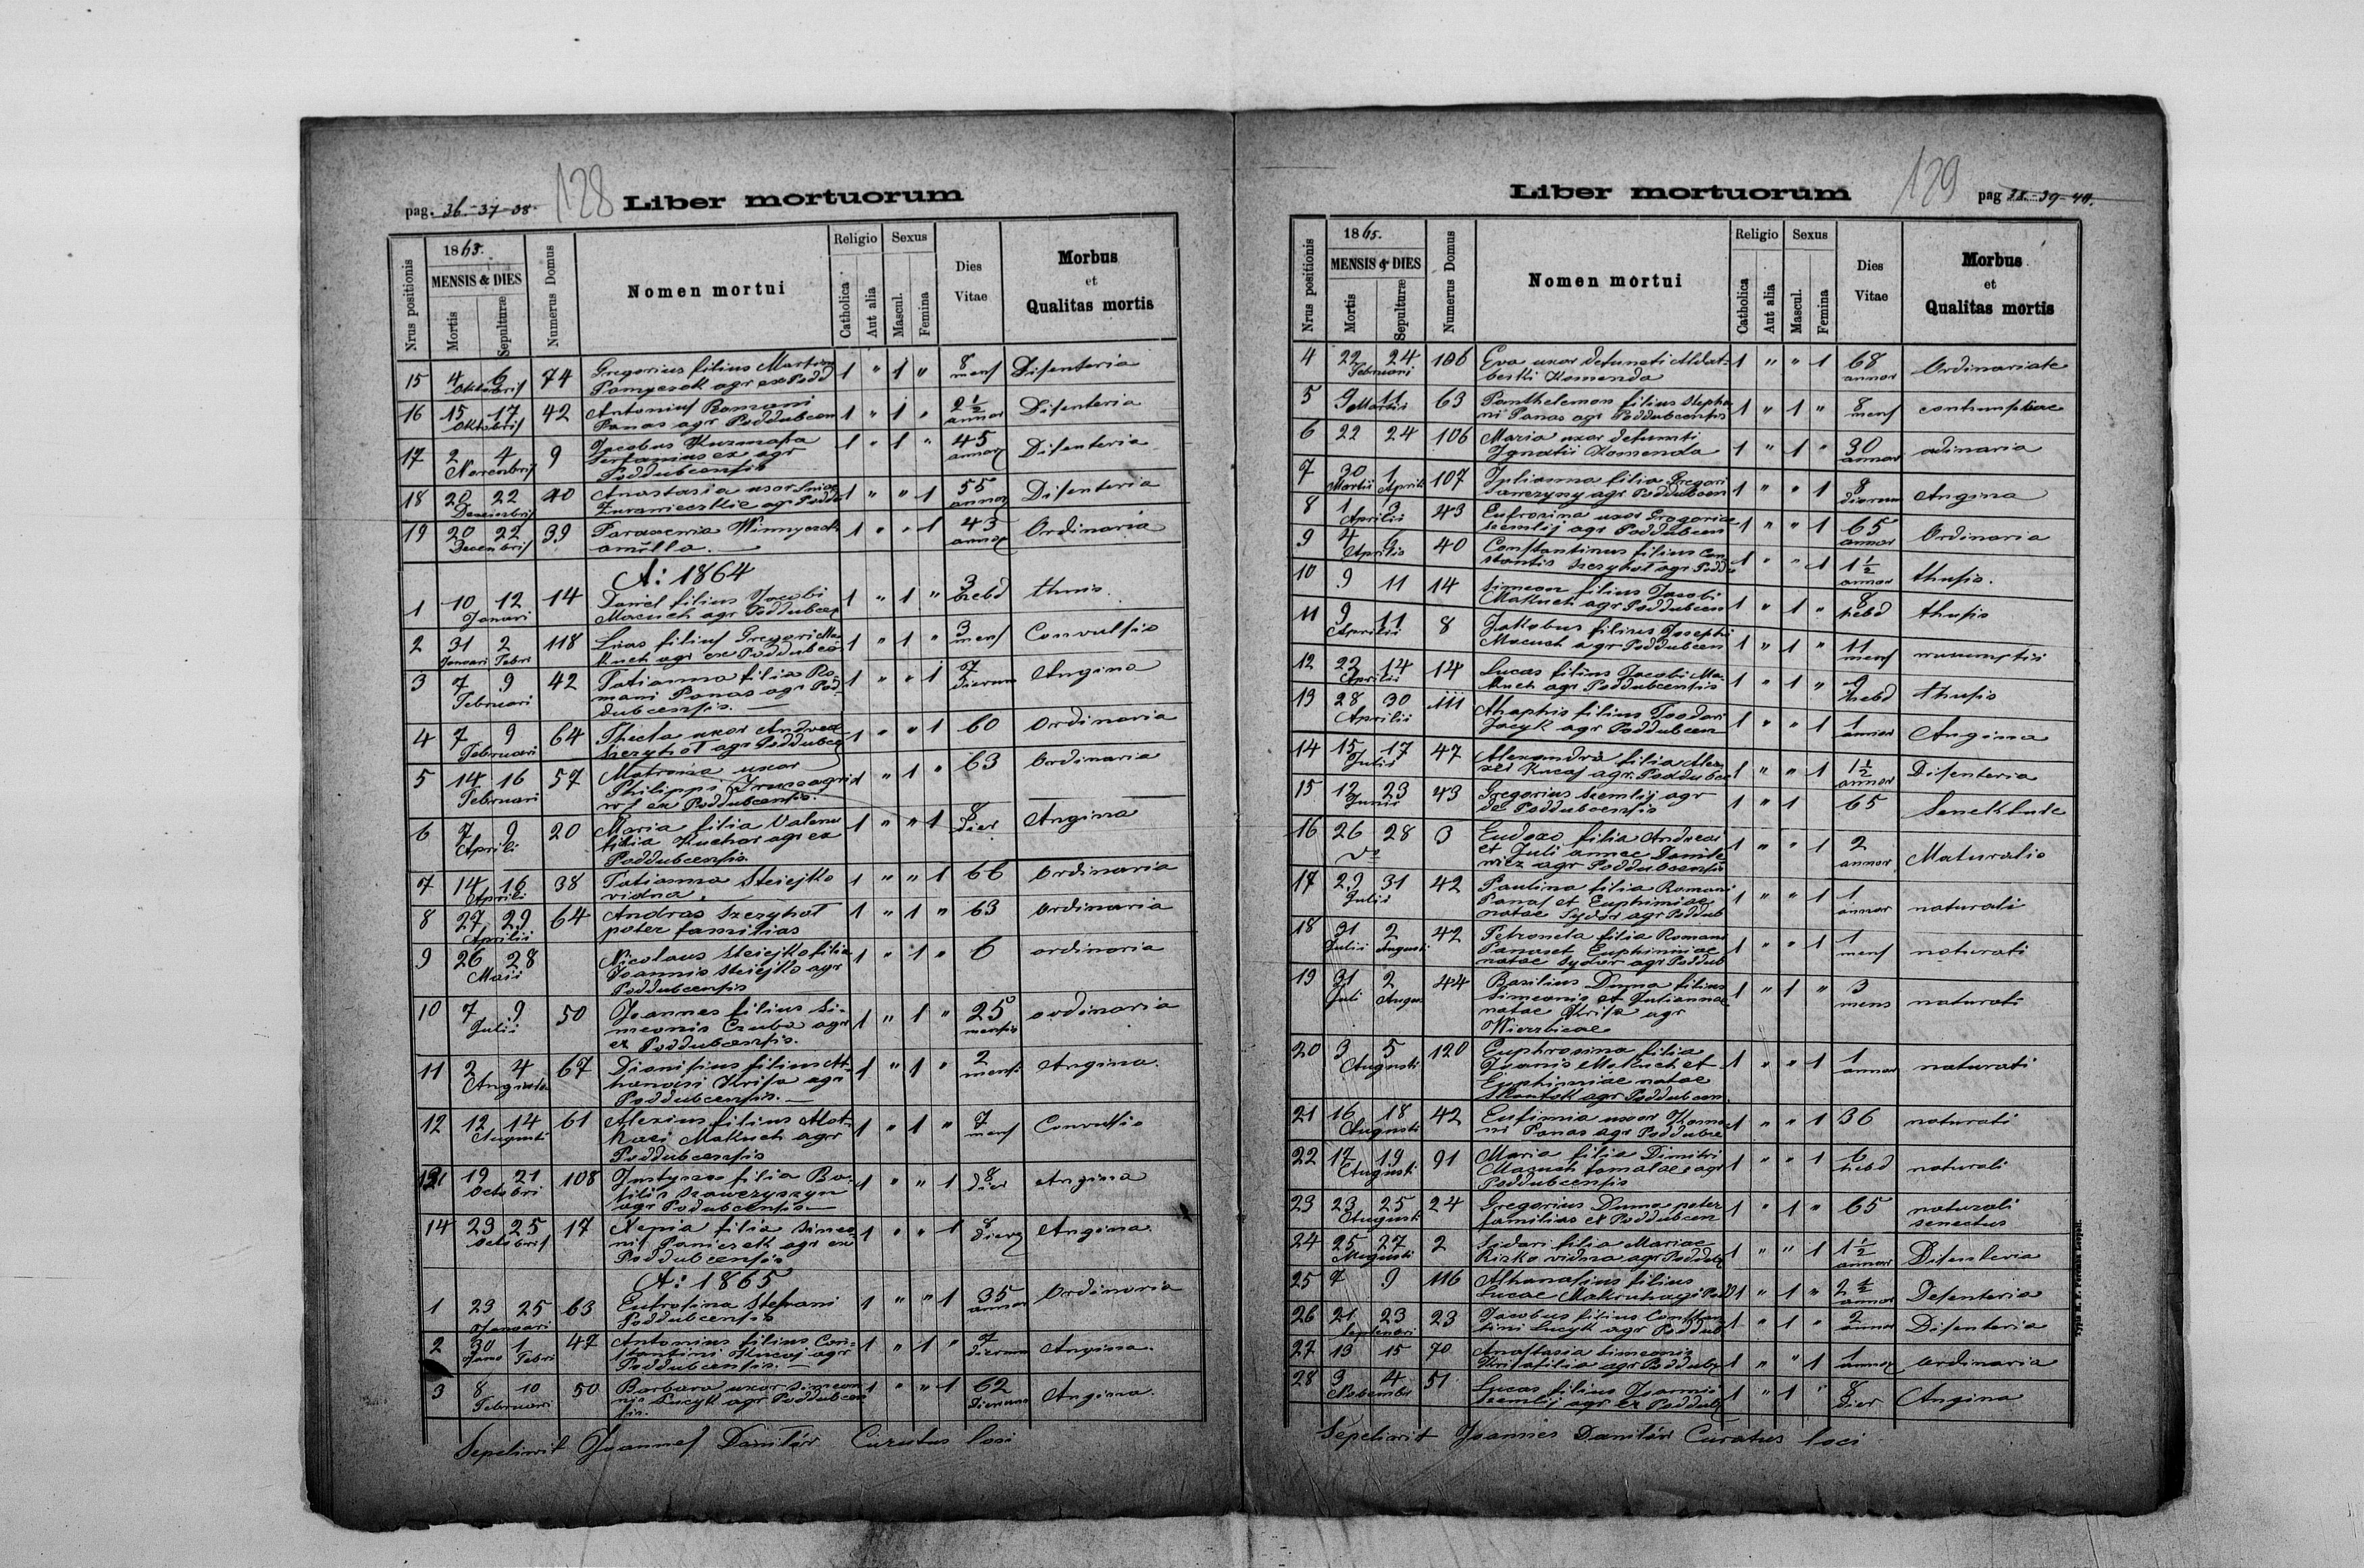 pag. 36-37-38. 128 Liber mortuorum
Nrus positionis
1863.
MENSIS & DIES
Mortis
Sepulturæ
Numerus Domus
Nomen mortui
Religio
Catholica
Aut alia
Sexus
Mascul.
Femina
Dies Vitae
Morbus
et
Qualitas mortis
15 4 6 Oktobris 74 Gregorius filius
agr ex Podd 1 " 1 " 8 mens Disenteria
16 15 17 Oktobris 42 Antonius Romani
Panas agr Poddubcen 1 " 1 " 2 1/2 annor Disenteria
17 2 4 Novenbris 9 Jacobus
ex agr
Poddubcensis 1 " 1 " 45 annor Disenteria
18 20 22 Decenbris 40 Anastasia uxor
agr Poddu 1 " " 1 55 annor Disenteria
19 20 22 Decenbris 39 Paraxenia Winnyczok
1 " " 1 43 annor Ordinaria
A: 1864
1 10 12 Januari 14 Daniel filius Jacobi
Macuch agr Poddubcen 1 " 1 " 3 hebd
2 31 2 Januari Febri 118 Lucas filius Gregori Ma-
kuch agr ex Poddubcen 1 " 1 " 3 mens Convulsio
3 7 9 Februari 42 Tatianna filia Ro-
mani Panas agr Pod-
dubcensis. 1 " " 1 7 dierum Angina
4 7 9 Februari 64 Thecla uxor Andreae
Szczyhoł agr Poddubce 1 " " 1 60 Ordinaria
5 14 16 Februari 57 Matrona uxor
Philippi
ex Poddubcensis. 1 " 1 " 63 Ordinaria
6 7 9 Aprili 20 Maria filia
agr ex
Poddubcensis 1 " " 1 8 dier Angina
7 14 16 Aprili 38 Tatianna Steciejko
vidua. 1 " " 1 66 Ordinaria
8 27 29 Aprilii 64 Andras Szczyhoł
pater familias 1 " 1 " 63 Ordinaria
9 26 28 Maii Nicolaus Steciejko filiu
Joannis Steciejko agr
Poddubcensis 1 " 1 " 6 ordinaria
10 7 9 Julii 50 Joannes filius Si-
meonis Czuba agr
ex Poddubcensis. 1 " 1 " 25 mensis ordinaria
11 2 4 Augusta 67 Dionisius filius At-
hanasi Krisa agr
Poddubcensis. 1 " 1 " 2 mens Angina.
12 12 14 Augusti 61 Alexius filius
Makuch agr
Poddubcensis 1 " 1 " 7 mens Convulsio
19 21 Octobri 108 filia Ba-
silii
agr Podubcensis 1 " " 1 8 dier Angina
14 23 25 Octobris 17 filia Simeo-
nis agr ex
Poddubcensis 1 " " 1 8 dier Angina.
A: 1865
1 23 25 Januari 63 Eufrosina Stefani
Poddubcensis 1 " " 1 35 annor Ordinaria
2 30 1 Janu Febri 47 Antonius filius Con-
stantini Kucaj agr
Poddubcensis. 1 " 1 " 7 dierum Angina.
3 8 10 Februari 50 Barbara uxor Simeo
nis Lucyk agr Poddubcen
sis. 1 " " 1 62 Dierum Angina.
Sepelivit Joannes Daniłów Curatus loci
Liber mortuorum 129 pag 38-39-40.
Nrus positionis
1865.
MENSIS & DIES
Mortis
Sepulturæ
Numerus Domus
Nomen mortui
Religio
Catholica
Aut alia
Sexus
Mascul.
Femina
Dies Vitae
Morbus
et
Qualitas mortis
4 22 24 Februari 106 Eva uxor defuncti
Komenda 1 " " 1 68 annor Ordinariate
5 9 11 Martii 63 Panthelemon filius Stepha
ni Panas agr Poddubcensis 1 " 1 " 8 mens
6 22 24 106 Maria uxor defuncti
Ignatii Komenda 1 " 1 " 30 annor
7 30 1 Martii Aprili 107 Julianna filia Gregori
agr Poddubcen 1 " " 1 8 dierum Angina
8 1 3 Aprilii 43 Eufrosina uxor Gregoriae
Szemlij agr Poddubcen 1 " " 1 65 annor Ordinaria
9 4 6 Aprilis 40 Constantinus filius Con
stantis Szczyhoł agr Podd 1 " " 1 1 1/2 annor thusio.
10 9 11 14 Simeon filius Jacobi
Makuch agr Poddubcen 1 " 1 " 8 hebd thusio
11 9 11 Aprilii 8 Jakobus filius Josephi
Macuch agr Poddubcen 1 " 1 " 11 mens
12 14 Aprilii 14 Lucas filius Jacobi Ma-
kuch agr Poddubcensis 1 " 1 " 9 hebd thusio
13 28 30 Aprilii 111 filius Teodori
Jacyk agr Poddubcen 1 " " 1 1 annor Angina
14 15 17 Julii 47 Alexandra filia Alex
xei Kucaj agr Poddubce 1 " " 1 1 1/2 annor Disenteria
15 12 23 Junii 43 Gregorius Szemlij agr
de Poddubcensis 1 " 1 65
16 26 28 3 Eudoxo filia Andreae
et Juli annae Danile
wicz agr Poddubcensis 1 " " 1 2 annor Maturalio
17 29 31 Julii 42 Paulina filia Romani
Panas et Euphimiae
natae Sydor agr Poddub 1 " " 1 1 annor naturali
18 31 2 Julii Augusti 42 Petronela filia Romani
Panas et Euphimiae
natae Sydor agr Poddub 1 " " 1 1 mens naturali
19 31 2 Juli Augus 44 Basilius Duma filius
Simeonis et Juliannae
natae Krisa agr
Wierzbicae 1 " 1 " 3 mens naturali
20 3 5 Augusti 120 Euphrosina filia
Joanis Makuch et
Euphimiae natae
agr Poddubcen 1 " " 1 1 annor naturali
21 16 18 Augusti 42 Eufimia uxor Roma
ni Panas agr Poddubce 1 " " 1 36 naturali
22 17 19 Augusti 91 Maria filia Dimitri
agr
Poddubcensis 1 " " 1 6 hebd naturali
23 23 25 Augusti 24 Gregorius Duma pater
familias ex Poddubcen 1 " 1 " 65 naturali
senectus
24 25 27 Augusti 2 filia Mariae
vidua agr Poddub 1 " " 1 1 1/2 annor Disenteria
25 7 9 116 Athanasius filius
Lucae 1 " 1 " 2 1/2 annor Desenteria
26 21 23 23 Jacobus filius Constan
tini Lucyk agr Poddub 1 " 1 " 2 annor Disenteria
27 13 15 70 Anastasia Simeonis
Krisa filia agr Poddub 1 " " 1 1 annor ordinaria
28 3 4 Nobembri 51 Lucas filius Joannis
Szemlij agr ex Poddub 1 " 1 " 8 dier Angina
Sepelivit Joannes Daniłów Curatus loci